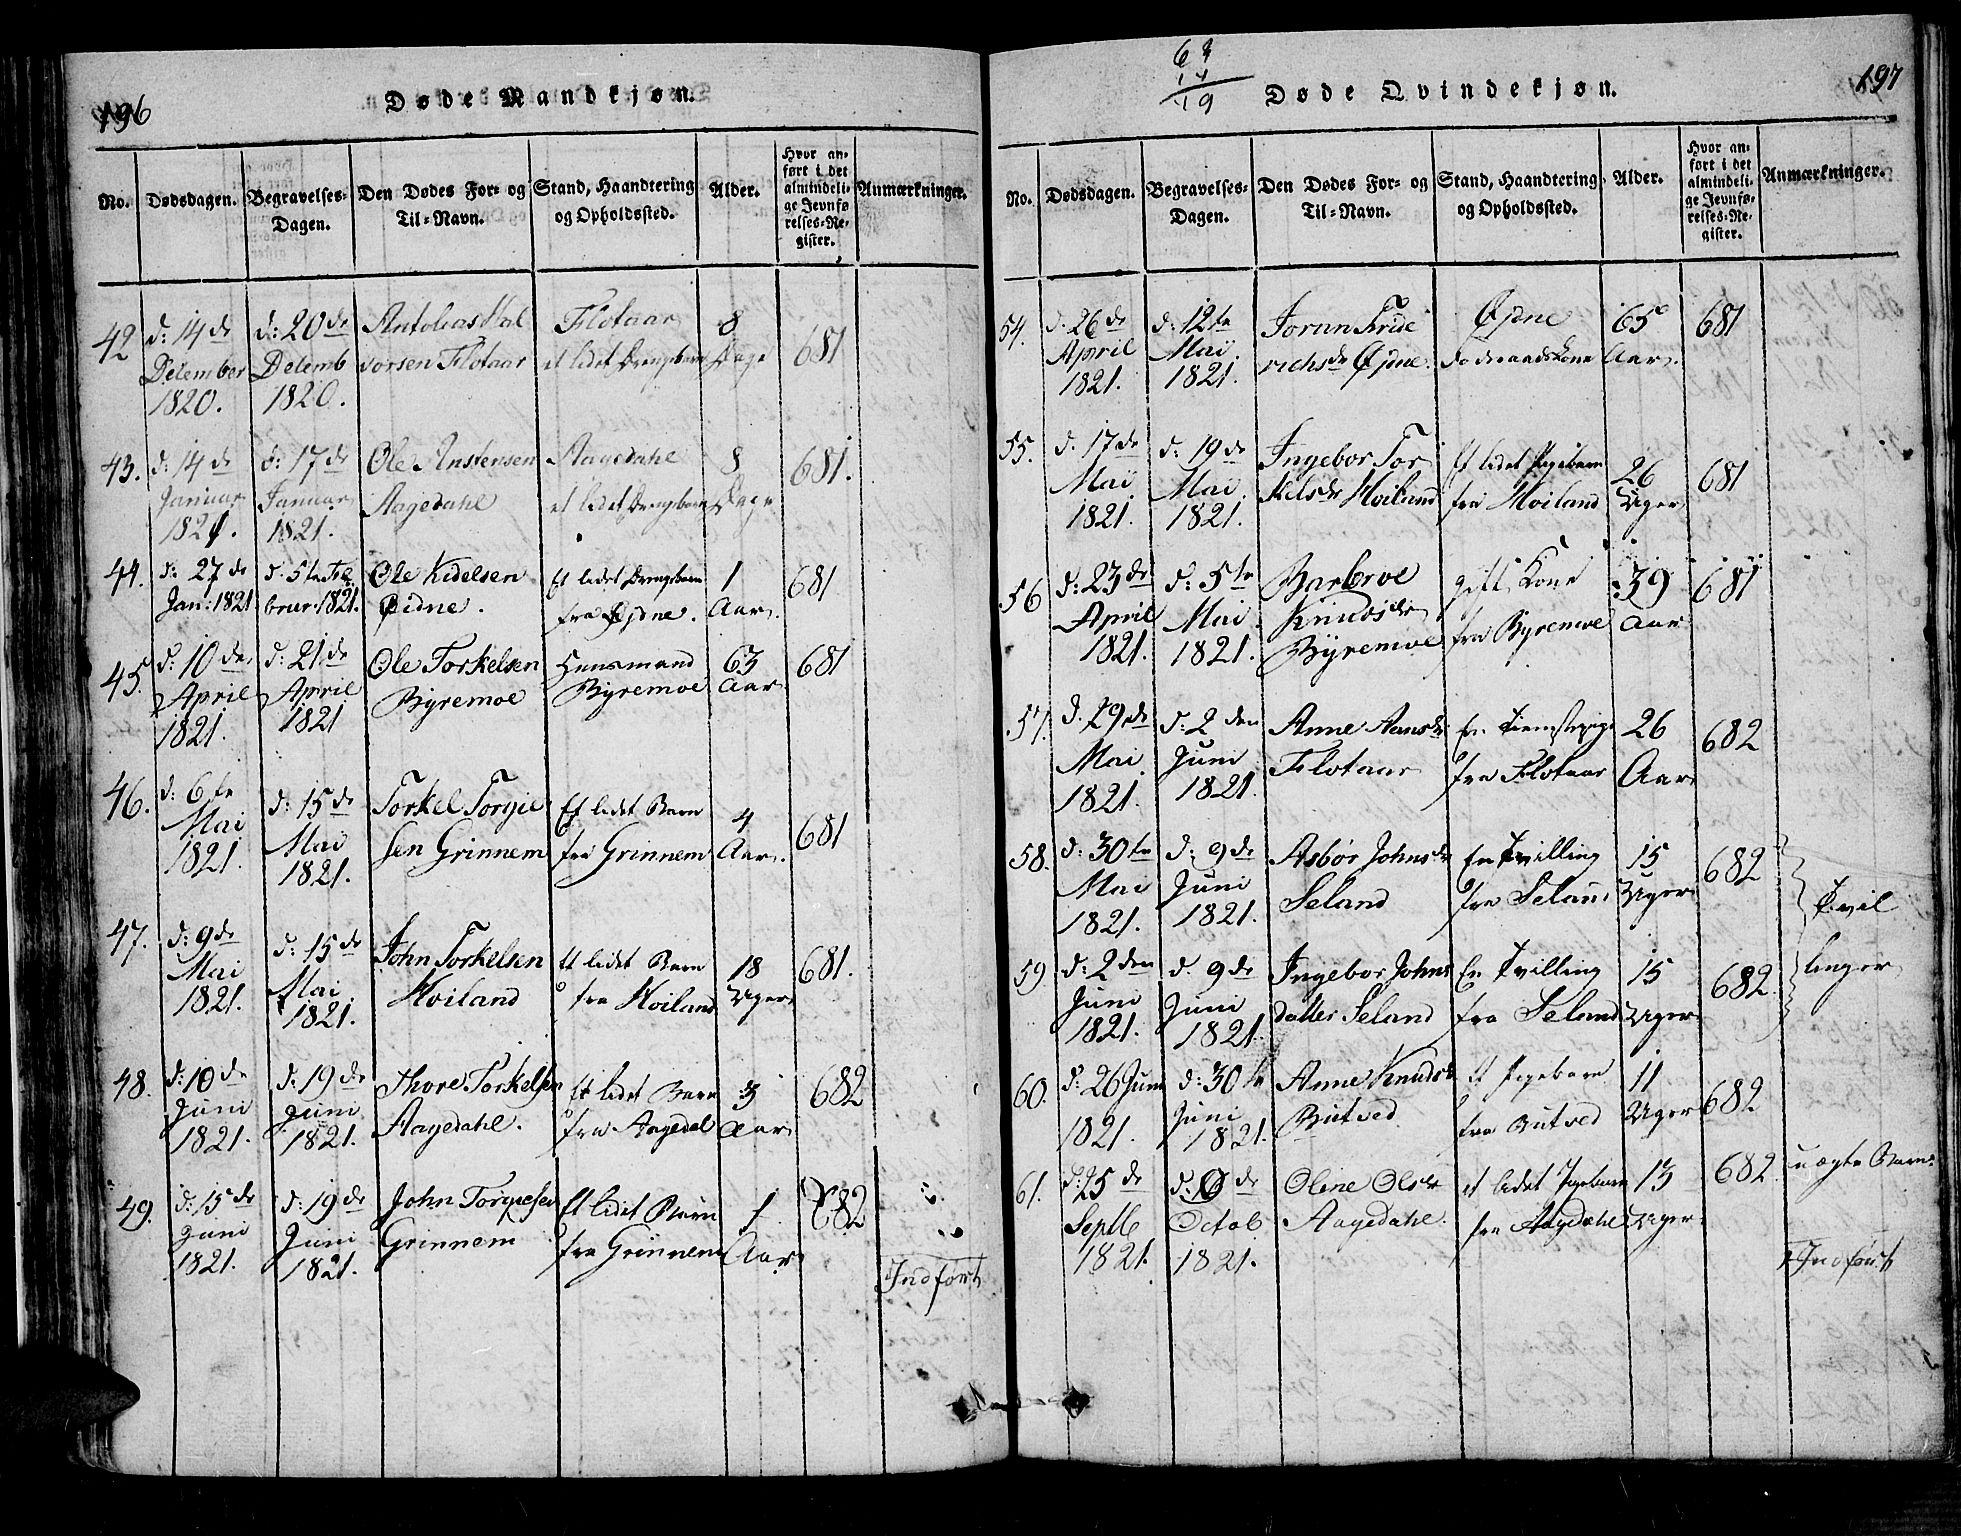 196
Døde Mandkjøn.
No.
Dødsdagen.
Begravelses-
Dagen.
Den Dødes For- og
Til-Navn.
Stand, Haandtering
og Opholdssted.
Alder.
Hvor an-
ført i det
almindeli-
ge Jevnfø-
relses-Re-
gister.
Anmærkninger.
42
d: 14de
December
1820.
d: 20de
Decemb
1820.
Flotaar
vorsen Flotaar
et lidet Drengebarn
8
Dage
681
43.
d: 14de
Januar
1821.
d: 17de
Januar
1821.
Ole Anstensen
Aagedahl
Aagedahl
et lidet Drengebarn
8
Dage
681.
44.
d: 27de
Jan: 1821
d. 5te Fe
brur. 1821.
Ole Kidelsen
Øidne.
Et lidet Drengebarn
fra Øjdne.
1
Aar.
681.
45.
d: 10de
April
1821.
d: 21de
April
1821
Ole Torkelsen
Byremoe
Huusmand
Byremoe
63
Aar
681
46.
d: 6te
Mai
1821.
d: 15de
Mai
1821.
Torkel Torgie
sen Grinnem
Et lidet Barn
fra Grinnem
4
Aar.
681
47.
d: 9de
Mai
1821.
d: 15de
Mai
1821.
John Torkelsen
Hoiland
Et lidet Barn
fra Hoiland
18
Uger
681.
48.
d: 10de
Juni
1821.
d: 19de
Juni
1821.
Thore Torkelsen
Aagedahl.
Et lidet Barn
fra Aagedal
3
Aar
682
49.
d: 15de
Juni
1821.
d: 19de
Juni
1821.
John Torgiesen
Grinnem
Et lidet Barn
fra Grinnem
1
Aar
682
Indført
197
19
Døde Qvindekjøn.
No.
Dødsdagen.
Begravelses-
Dagen.
Den Dødes For- og
Til-Navn.
Stand, Haandtering,
og Opholdssted.
Alder.
Hvor an-
ført i det
almindeli-
ge Jevnfø-
relses-Re-
gister.
Anmærkninger.
54.
d. 26de
April
1821.
d: 12te
Mai
1821.
Jorun Fride
richsdr Øjdne.
Øjdne
65
Aar.
681
55.
d. 17de
Mai
1821.
d: 19de
Mai
1821.
Ingebor Tor
kelsdr Hoiland
Et lidet Pigebarn
fra Hoiland
26
Uger
681
56
d: 23de
April
1821.
d: 5te
Mai
1821.
Barbroe
Knudsdr
Byremoe
gift Kone
fra Byremoe
39
Aar
681
57.
d. 29de
Mai
1821.
d: 2den
Juni
1821.
Anne Aansdr
Flotaar
En Tienstepige
fra Flotaar
26
Aar
682
58.
d: 30te
Mai
1821.
d: 9de
Juni
1821.
Asbør Johnsdr
Seland
En Tvilling
fra Seland
15
Uger
682
Tvil
linger
59
d: 2den
Juni
1821.
d. 9de
Juni
1821.
Ingebor Johns
datter Seland
En Tvilling
fra Seland
15
Uger
682.
60.
d: 26 Juni
1821.
d: 30te
Juni
1821.
Anne Knudsdr
Butved
et Pigebarn
fra Butved
11
Uger
682
61.
d: 25de
Septb
1821.
Octob
1821.
Oline Olsdr
Aagedahl.
et lidet Pigebarn
fra Aagedahl
13
Uger
682.
uægte Barn.
Indført